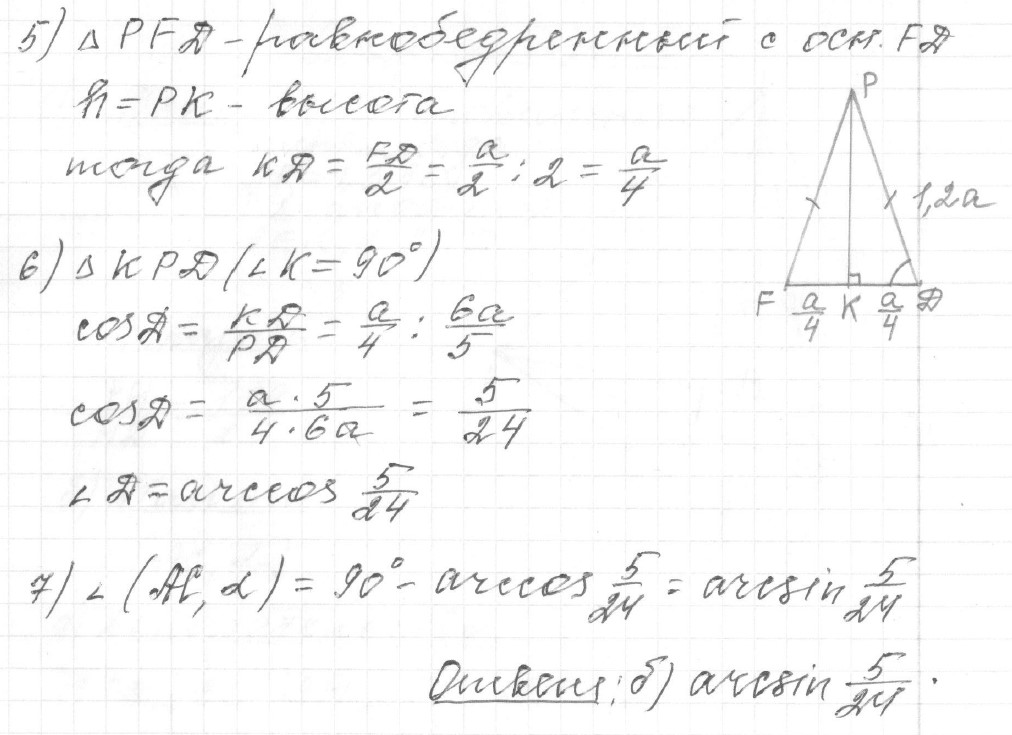 5) △ PFD - равнобедренный с осн. FD
h = PK - высота
тогда KD = FD/2 = a/2 : 2 = a/4
6) △ KPD (∠K = 90°)
cosD = KD/PD = a/4 : 6a/5
cosD = a · 5/4 · 6a = 5/24
∠D = arccos 5/24
7) ∠(AC, α) = 90° - arccos 5/24 = arcsin 5/24
Ответ: б) arcsin 5/24.
P
1,2a
F a/4 K a/4 D